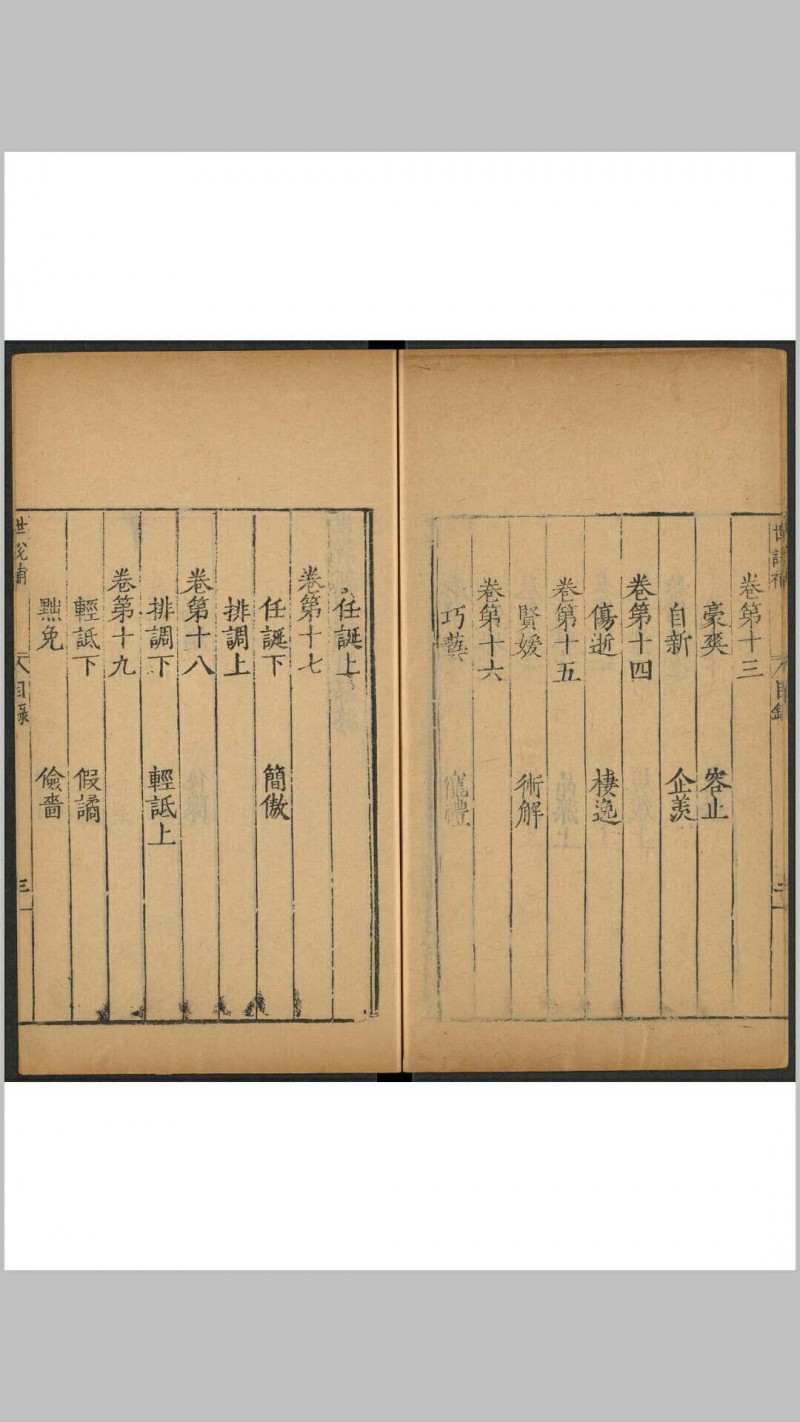 卷第十三
豪爽 容止
自新 企羨
卷第十四
傷逝 棲逸
卷第十五
賢媛 術解
卷第十六
巧藝 寵禮
任誕上
卷第十七
任誕下 簡傲
排調上
卷第十八
排調下 輕詆上
卷第十九
輕詆下 假譎
黜免 儉嗇
世說補 目錄 三